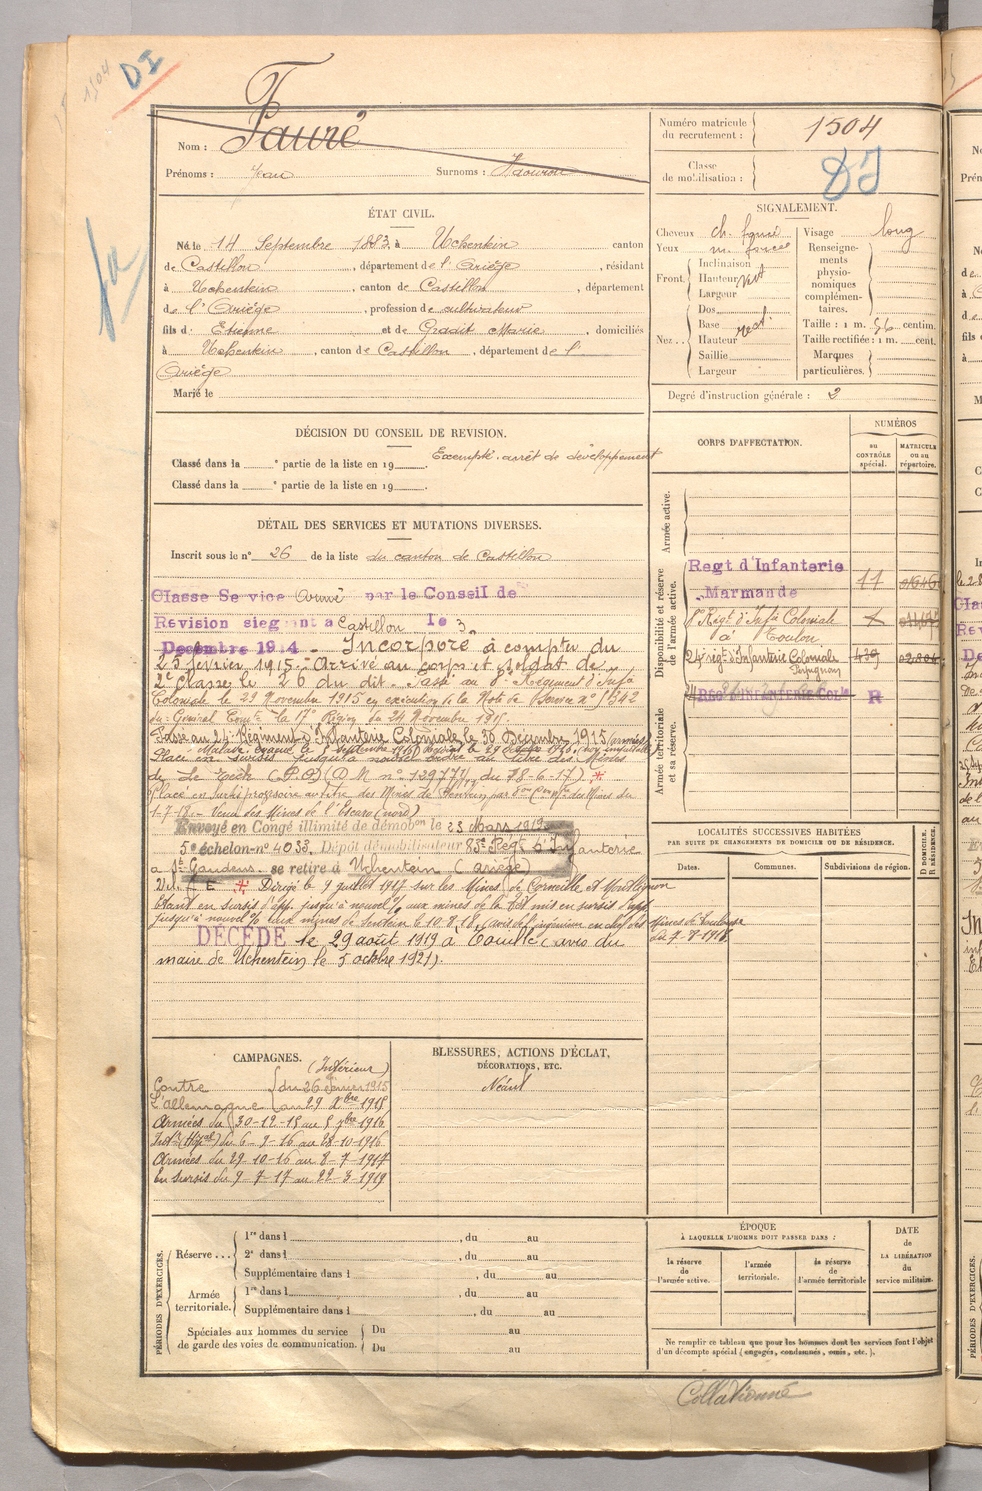 1504
DI
Fauré
Nom :
Prénoms : Jean Surnoms :
Numéro matricule
du recrutement : 1504
Classe
de mobilisation :
ÉTAT CIVIL.
Né le 14 Septembre 1883 à Uchentein canton
de Castillon, département de l'Ariège, résidant
à Uchentein, canton de Castillon, département
de l'Ariège, profession de cultivateur
fils d' Etienne et de Gradit Marie, domiciliés
à Uchentein, canton de Castillon, département de l'
Ariège
Marié le
SIGNALEMENT.
Cheveux ch. foncé
Yeux m. foncé
Front.
Inclinaison
Hauteur vert
Largeur
Nez..
Dos
Base rect.
Hauteur
Saillie
Largeur
Visage long
Renseigne-
ments
physio-
nomiques
complémen-
taires.
Taille : 1 m. 56 centim.
Taille rectifiée : 1 m. cent.
Marques
particulières.
Degré d'instruction générale : 2
DÉCISION DU CONSEIL DE REVISION.
Exempté. arrêt de développement
Classé dans la e partie de la liste en 19 .
Classé dans la e partie de la liste en 19 .
DÉTAIL DES SERVICES ET MUTATIONS DIVERSES.
Inscrit sous le n° 26 de la liste du canton de Castillon
Classe Service Armé par le Conseil de
Revision siegeant a Castillon le 3
Decembre 1914 - Incorporé à compter du
25 février 1915. - Arrivé au corps et soldat de
2e Classe le 26 du dit. - Passé au 8e Régiment d'Infie
Coloniale le 29 Novembre 1915 en exécution de la Note de Service n° 1342
du Général Comt la 17e Région du 24 Novembre 1915.
Passé au 24e Régiment d'Infanterie Coloniale le 30 Décembre 1915 (armées)
Malade, évacué le 5 septembre 1916
Placé en sursis jusqu'à nouvel ordre au titre des Mines
de Le Tech (P.O) (D M n° 12977 du 18-6-17). *
Placé en Sursis provisoire au titre des Mines de Sentein par des Mines du
1-7-18. - Venu des Mines de l'Escaro (nord)
Envoyé en Congé illimité de démobon le 23 Mars 1919
5e échelon-n° 4033, Dépôt démobilisateur 83e Régt d'Infanterie
a St Gaudens se retire à Uchentein (Ariège)
* Dirigé le 9 juillet 1917 sur les Mines de Corneilla et Montlignon
Etant en sursis d'app. jusqu'à nouvel % aux mines de
jusqu'à nouvel % aux mines de Sentein le 10.8.18, (avis de l'ingénieur en chef des Mines de Toulouse
du 7-8-1918.
DÉCÉDÉ le 29 août 1919 à Toulle (avis du
maire de Uchentein le 5 octobre 1921).
CORPS D'AFFECTATION.
NUMÉROS
au
CONTRÔLE
spécial.
MATRICULE
ou au
répertoire.
Armée active.
Disponibilité et réserve
de l'armée active.
Armée territoriale
et sa réserve.
Regt d'Infanterie
Marmande 11
8e Régt d'Infie Coloniale
à Toulon
24e régt d'Infanterie Coloniale 439
Perpignan
24 REG D'INFANTERIE Cole R
LOCALITÉS SUCCESSIVES HABITÉES
PAR SUITE DE CHANGEMENTS DE DOMICILE OU DE RÉSIDENCE.
Dates. Communes. Subdivisions de région.
D DOMICILE.
R RÉSIDENCE.
CAMPAGNES.
(Intérieur)
Contre du 26 février 1915
L'allemagne au 29 Xbre 1915
Armées du 30-12-15 au 5 7bre 1916
Intr (Hopal) du 6-9-16 au 28-10-1916
Armées du 29-10-16 au 8-7-1917
En sursis du 9-7-17 au 22-3-1919
BLESSURES, ACTIONS D'ÉCLAT,
DÉCORATIONS, ETC.
Néant
PÉRIODES D'EXERCICES.
Réserve...
1re dans l , du au
2e dans l , du au
Supplémentaire dans l , du au
Armée
territoriale.
1re dans l , du au
Supplémentaire dans l du au
Spéciales aux hommes du service
de garde des voies de communication.
Du au
Du au
ÉPOQUE
À LAQUELLE L'HOMME DOIT PASSER DANS :
la réserve
de
l'armée active.
l'armée
territoriale.
la réserve
de
l'armée territoriale
DATE
de
LA LIBÉRATION
du
service militaire.
Ne remplir ce tableau que pour les hommes dont les services font l'objet
d'un décompte spécial (engagés, condamnés, omis, etc.).
Collationné